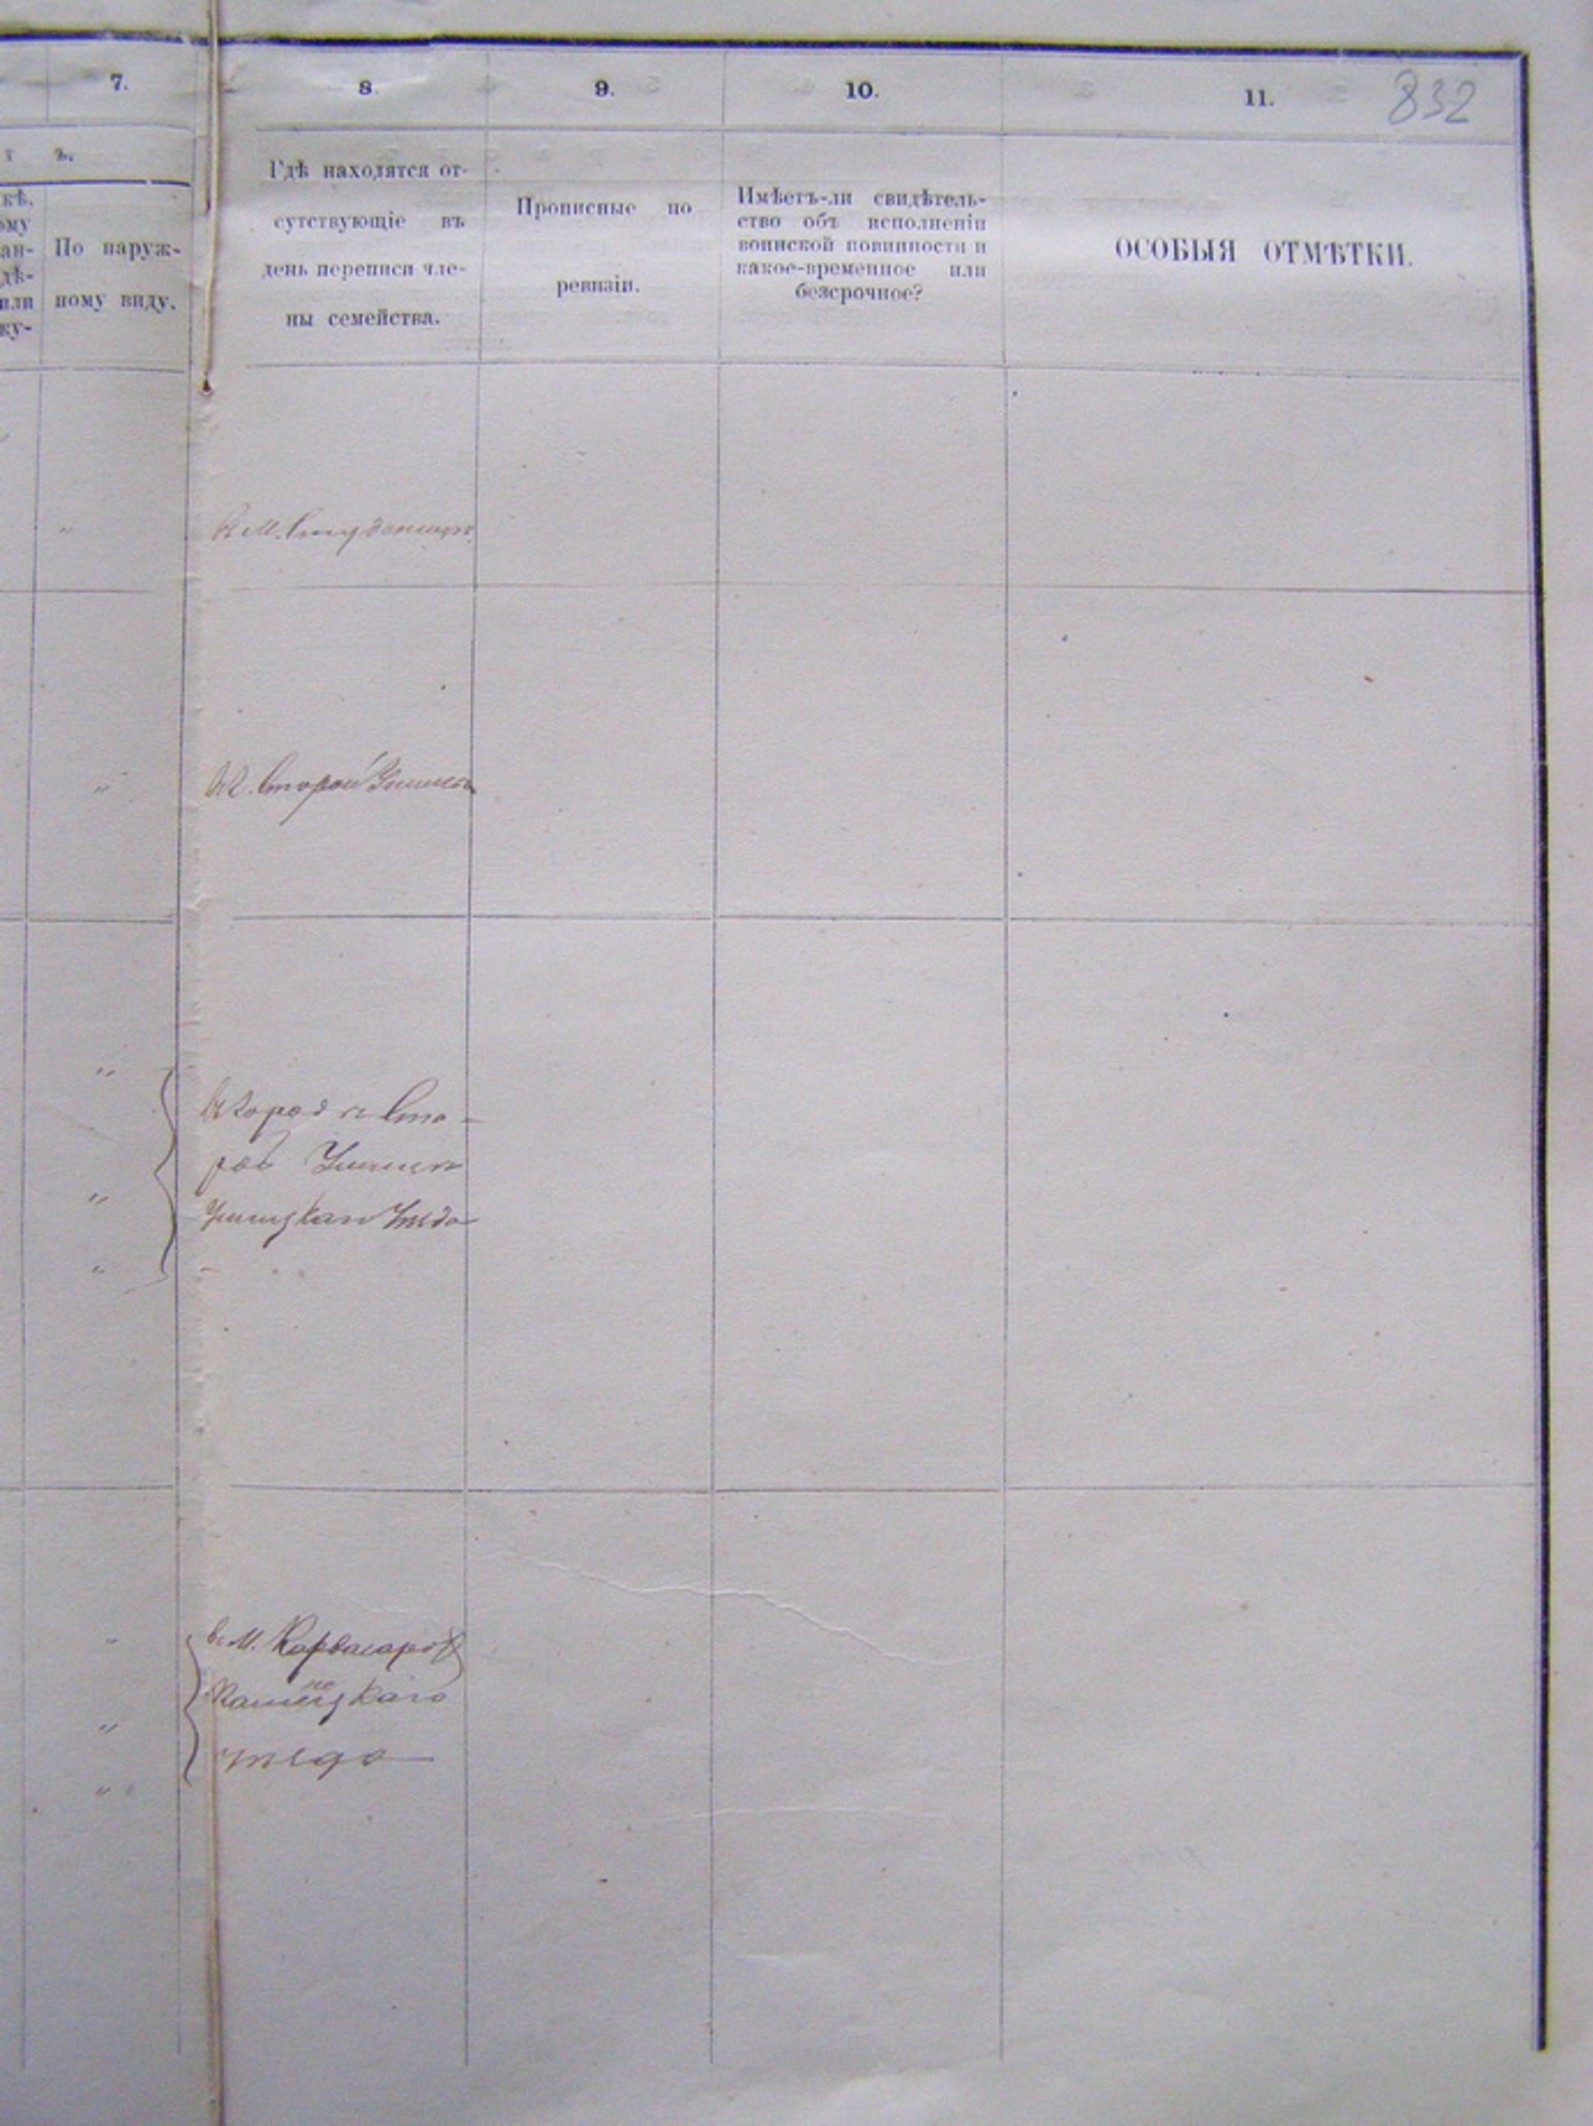 7.
8.
9.
10.
11.
832
ъ.
кѣ.
ому
ан-
дѣ-
или
ку-
По наруж-
ному виду.
Гдѣ находятся от-
сутствующіе въ
день переписи чле-
ны семейства.
Прописные по
ревизіи.
Имѣетъ-ли свидѣтель-
ство объ исполненіи
воинской повинности и
какое-временное или
безсрочное?
ОСОБЫЯ ОТМѢТКИ.
В М. Студеницѣ
Старой Ушицѣ
В городѣ Ста-
рой Ушицѣ
Ушицкаго Уѣзда
в М. Карвасарах
Каменецкаго
уѣзда